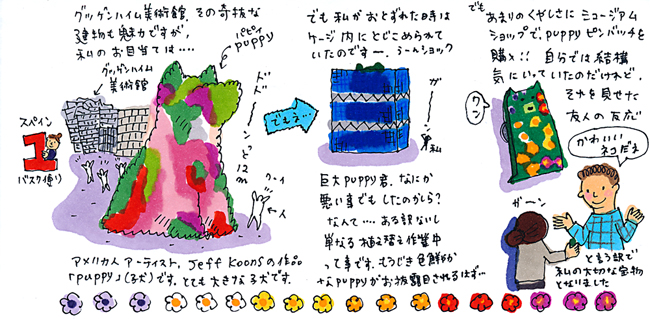 グッゲンハイム美術館、その奇抜な
建物も魅力ですが、
私のお目当ては‥‥
パピィ
puppy
グッゲンハイム
美術館
スペイン
1
バスク便り
ドドーーンと12m
ワーイ
人
アメリカ人アーティスト、Jeff Koonsの作品
「puppy」(子犬)です。とても大きな子犬です。
でもえ‥
でも私がおとずれた時は
ケージ内にとじこめられて
いたのですー、うーんショック
ガーーン
私
巨大puppy君、なにか
悪い事でもしたのかしら?
なんて‥‥ある訳ないし
単なる植え替え作業中
って事です。もうじき色鮮やか
なpuppyがお披露目されるはず…
でも
あまりのくやしさにミュージアム
ショップで、puppyピンバッチを
購入!! 自分では結構
気にいっていたのだけれど、
それを見せた
友人の反応
ワン
かわいい
ネコだネ
ガーン
と言う訳で
私の大切な宝物
となりました